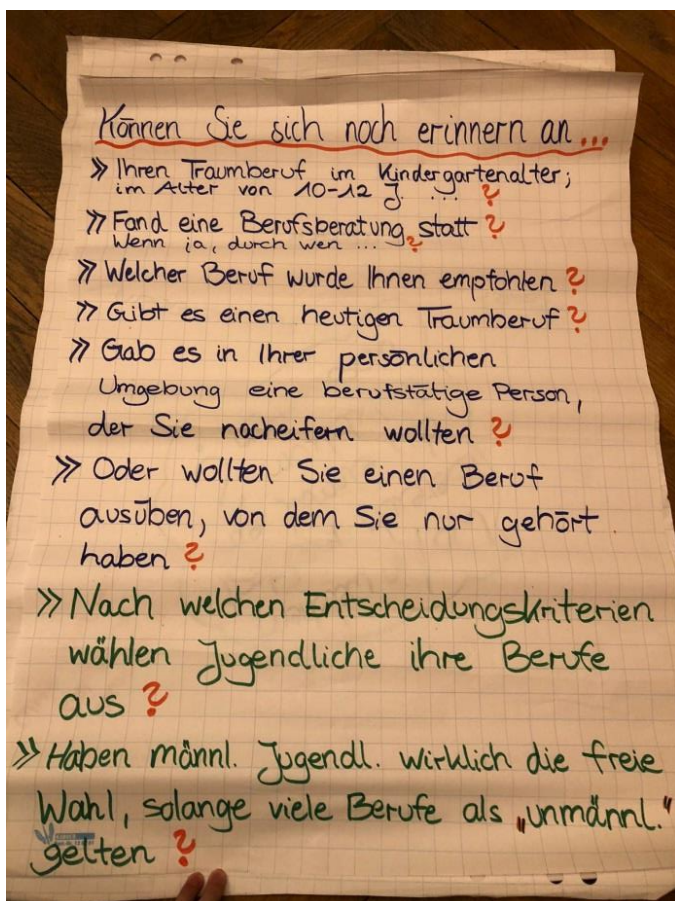 Können Sie sich noch erinnern an...
» Ihren Traumberuf im Kindergartenalter;
im Alter von 10-12 J. ... ?
» Fand eine Berufsberatung statt ?
Wenn ja, durch wen ... ?
» Welcher Beruf wurde Ihnen empfohlen ?
» Gibt es einen heutigen Traumberuf ?
» Gab es in Ihrer persönlichen
Umgebung eine berufstätige Person,
der Sie nacheifern wollten ?
» Oder wollten Sie einen Beruf
ausüben, von dem Sie nur gehört
haben ?
» Nach welchen Entscheidungskriterien
wählen Jugendliche ihre Berufe
aus ?
» Haben männl. Jugendl. wirklich die freie
Wahl, solange viele Berufe als „unmännl."
gelten ?